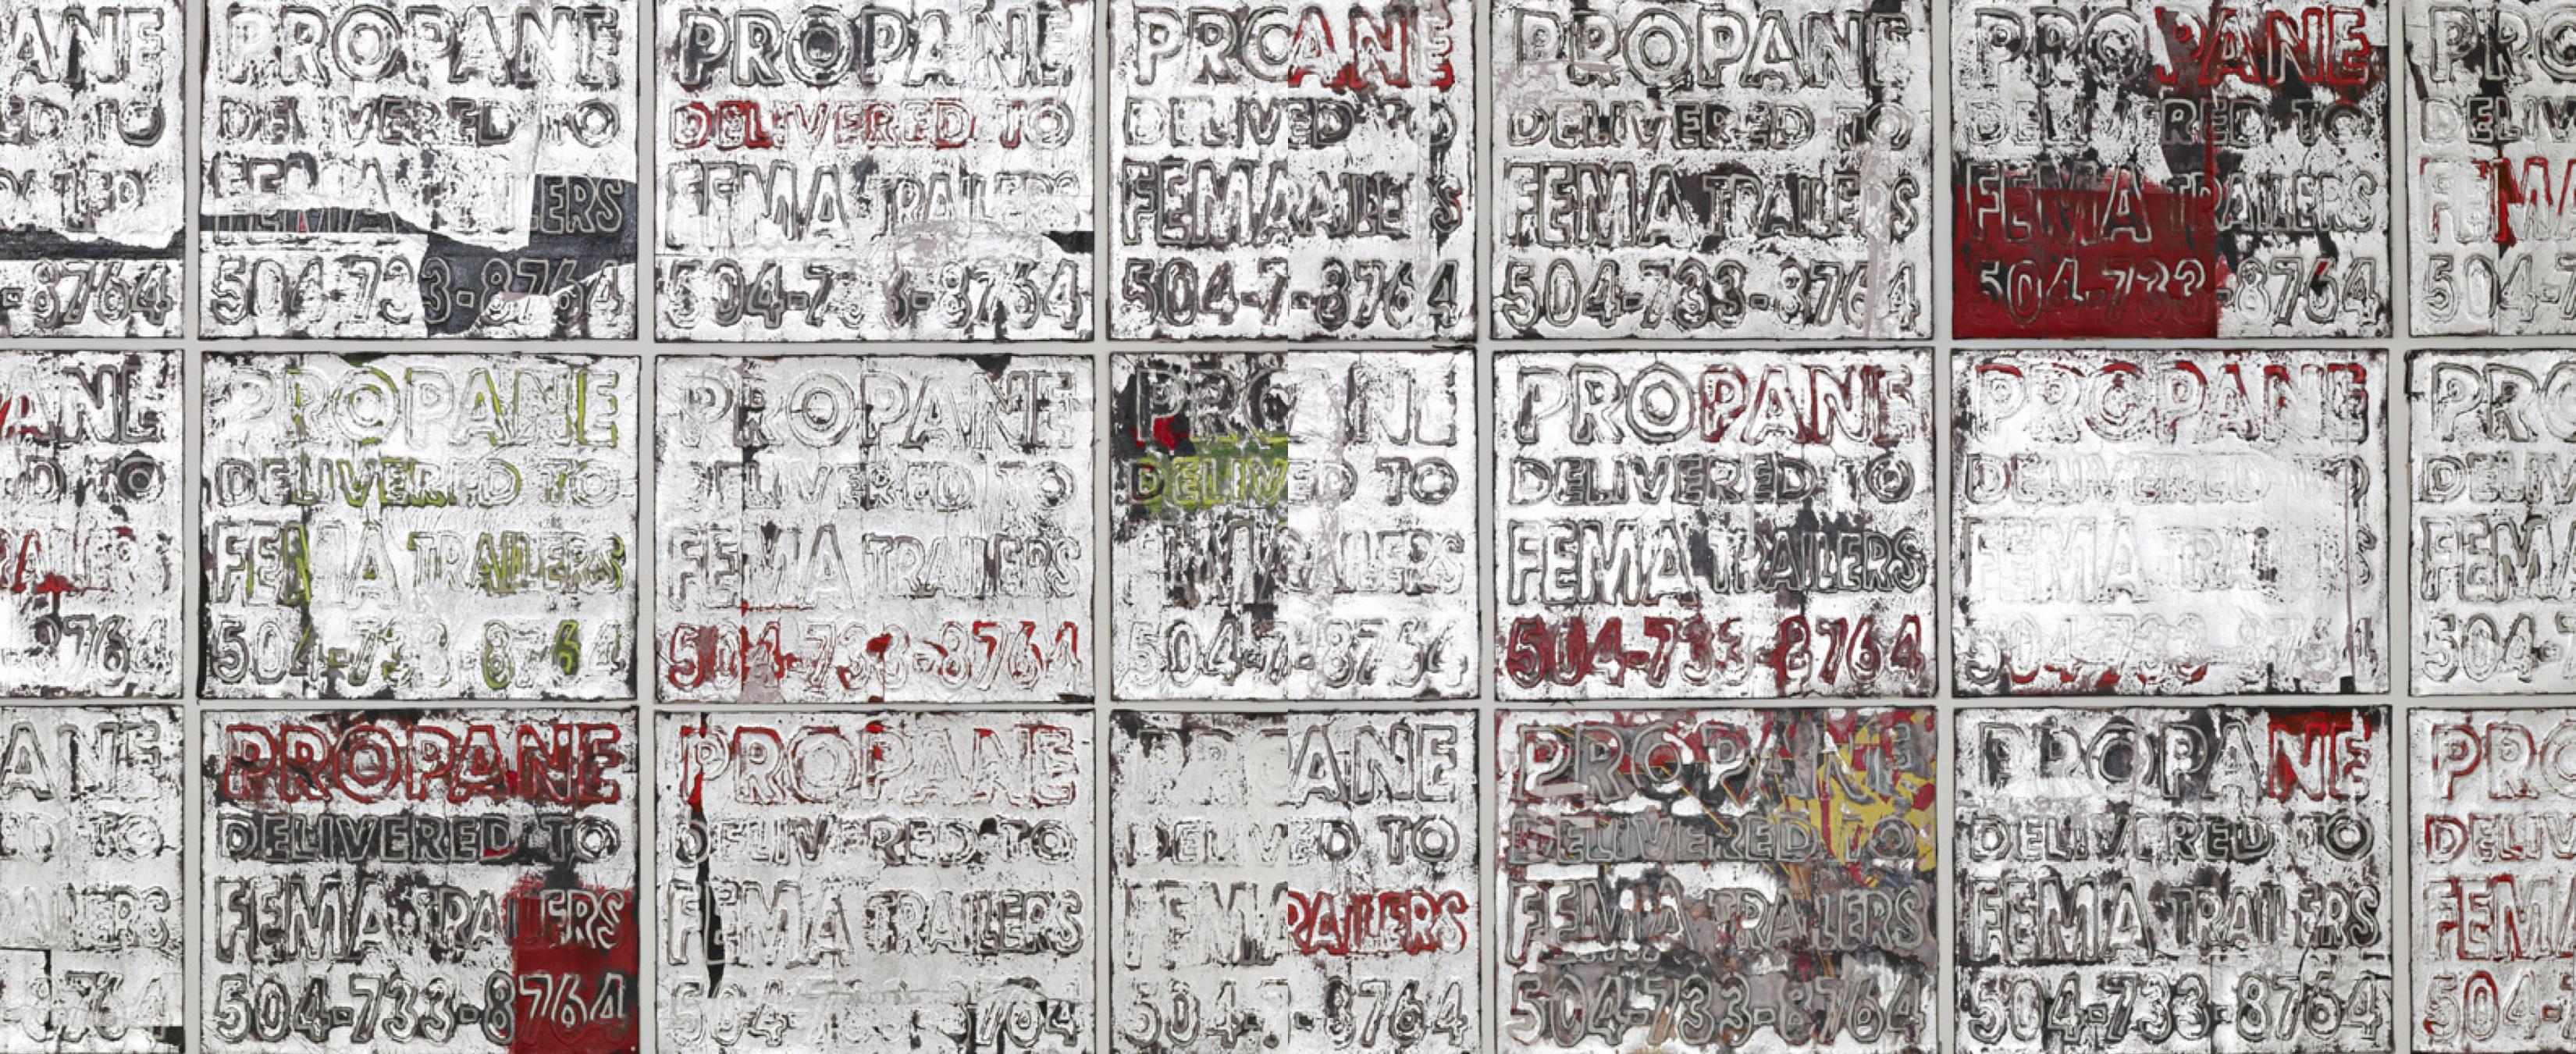 ANE
ED TO
-8764
PROPANE
DELIVERED TO
FEMA TRAILERS
504-733-8764
PROPANE
DELIVERED TO
FEMA TRAILERS
504-733-8764
PROANE
DELIVED TO
FEMAAILERS
504-7-8764
PROPANE
DELIVERED TO
FEMA TRAILERS
504-733-8764
PROPANE
DELIVERED TO
FEMA TRAILERS
504-733-8764
PRO
DELIV
FEMA
504-7
ANE
D TO
AILERS
8764
PROPANE
DELIVERED TO
FEMA TRAILERS
504-733-8764
PROPANE
DELIVERED TO
FEMA TRAILERS
504-733-8764
PRO NE
DELIVED TO
FEMRAILERS
504-7-8764
PROPANE
DELIVERED TO
FEMA TRAILERS
504-733-8764
PROPANE
DELIVERED TO
FEMA TRAILERS
504-733-8764
PRO
DELIV
FEMA
504-7
ANE
ED TO
AILERS
-8764
PROPANE
DELIVERED TO
FEMA TRAILERS
504-733-8764
PROPANE
DELIVERED TO
FEMA TRAILERS
504-733-8764
PROANE
DELIVED TO
FEMRAILERS
504-7-8764
PROPANE
DELIVERED TO
FEMA TRAILERS
504-733-8764
PROPANE
DELIVERED TO
FEMA TRAILERS
504-733-8764
PRO
DELIV
FEMA
504-7